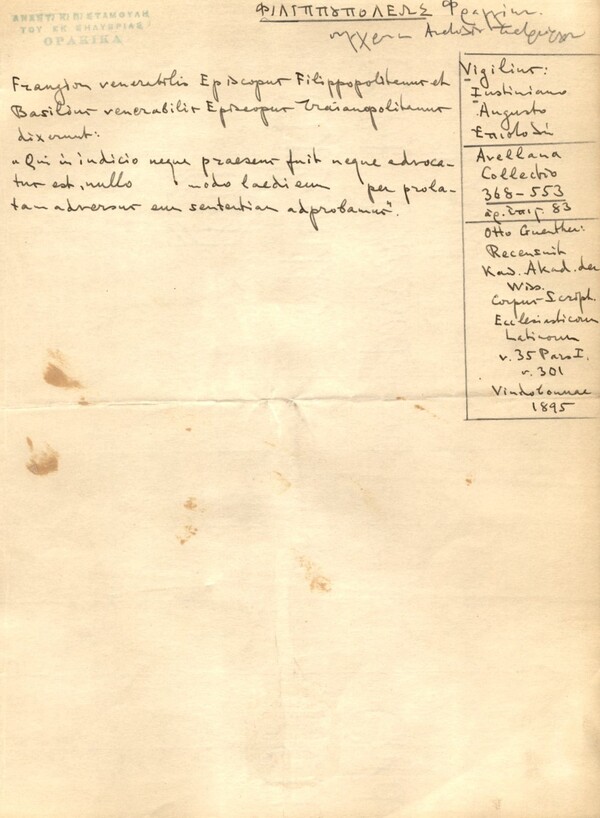 ΑΝΑΣΤ. Κ. Π. ΣΤΑΜΟΥΛΗ
ΤΟΥ ΕΚ ΣΗΛΥΒΡΙΑΣ
ΘΡΑΚΙΚΑ
ΦΙΛΙΠΠΟΥΠΟΛΕΩΣ Φραγγίων
Frangion venerabilis Episcopus Filippopolitanus et
Basilius venerabilis Episcopus Traianopolitanus
dixerunt:
"Qui in iudicio neque praesens fuit neque advoca-
tus est, nullo modo laedi eum per prola-
tam adversus eum sententiam adprobamus".
Vigilius:
Iustiniano
Augusto
Επιστολή
Avellana
Collectio
368-553
αρ. επιστ. 83
Otto Guenther:
Recensuit
Kais. Akad. der
Wiss.
Corpus Script.
Ecclesiasticorum
Latinorum
v. 35 Pars I.
σ. 301
Vindobonnae
1895